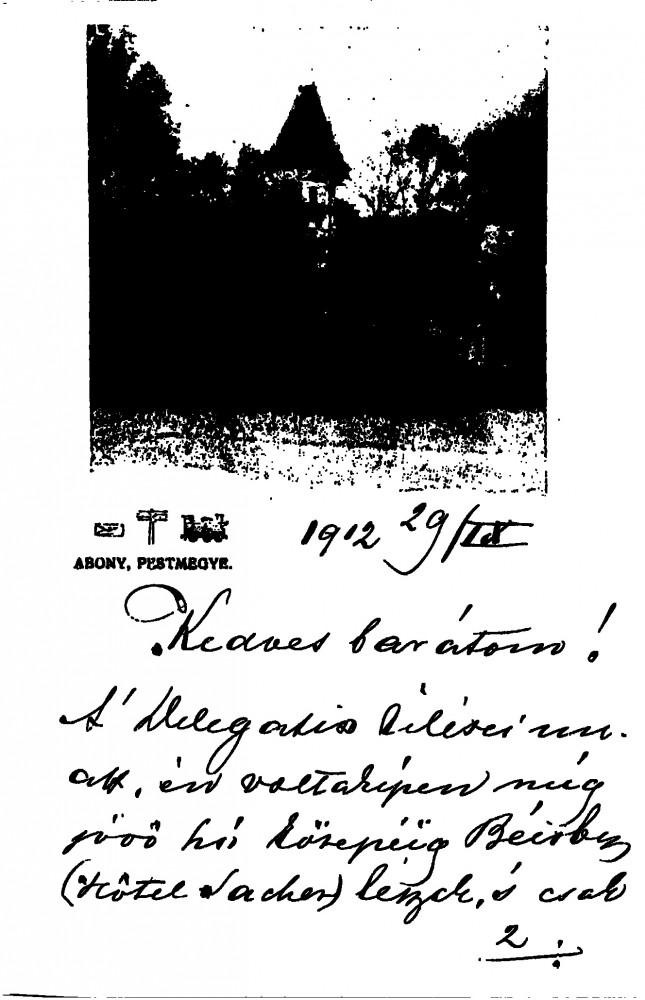 ABONY, PESTMEGYE.
1912 29/IX
Kedves barátom!
A' Delegatio ülései mi-
att, én voltaképen még
jövő hó közepéig Bécsben
(Hôtel Sacher) leszek, s csak
2